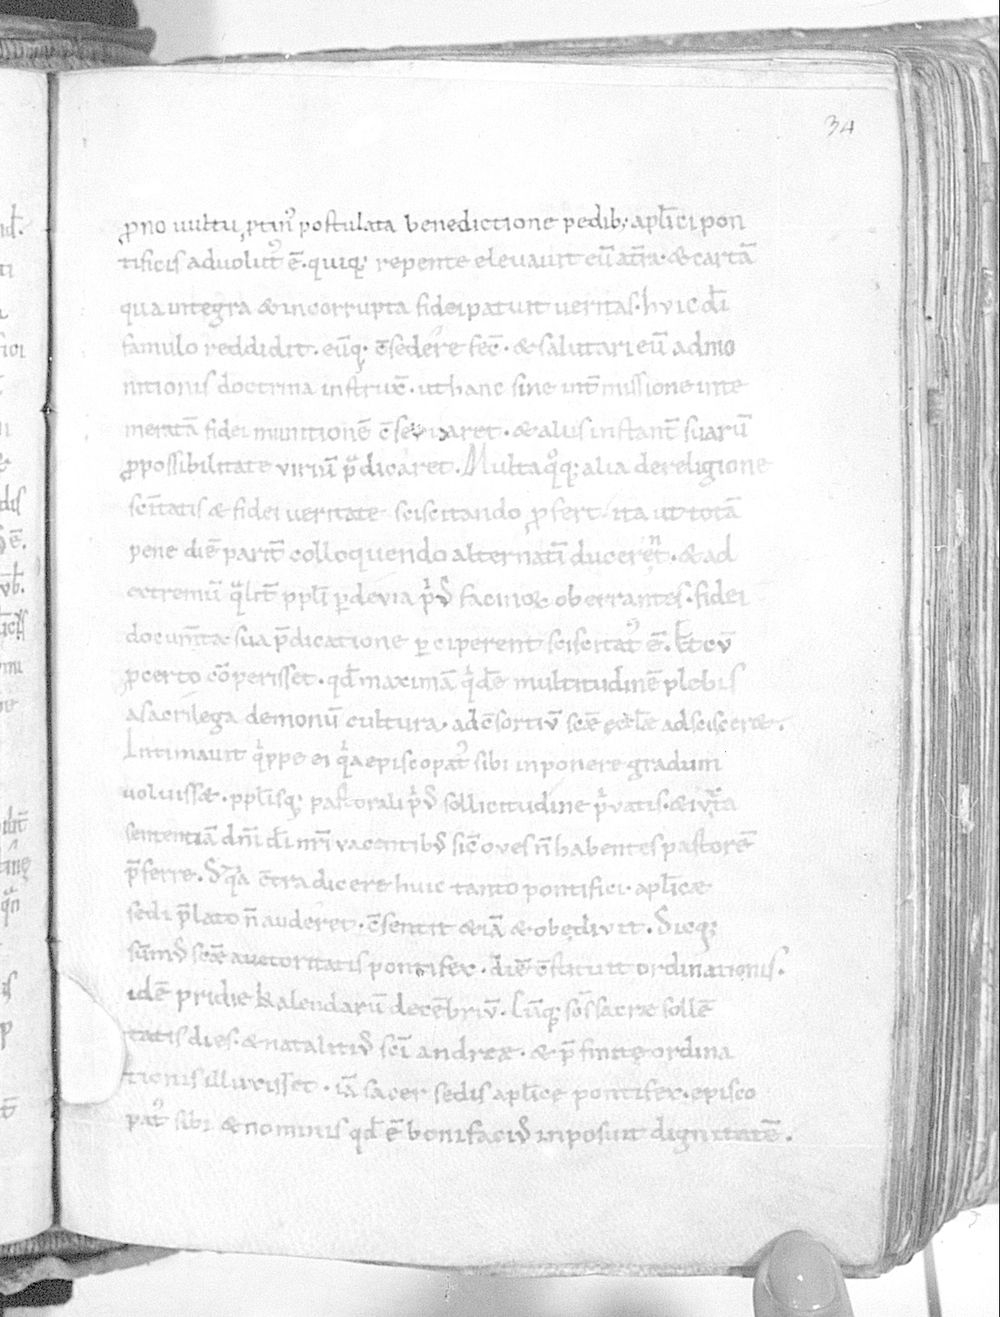 34
ꝓno uultu ptin᾽ postulata benedictione pedib; apl̄ici pon
tificis aduolut᾽ ē. quiq; repente eleuauit eū a tr̄ra. & cartā
qua integra & incorrupta fidei patuit ueritas. huic dī
famulo reddidit. eūq; c̄sedere fec̄. & salutari eū admo
nitionis doctrina instrux̄. ut hanc sine int̄missione inte
meratā fidei munitionē c̄seruaret. & aliis instant̄ suarū
ꝓpossibilitate viriū p̄dicaret. Multaq;ꝗ alia de religione
sc̄itatis & fidei ueritate sciscitando ꝓfert. ita ut totā
pene diē parit̄ colloquendo alternatī ducerent. & ad
extremū qͣlit̄ ppl̄i ꝑ deuia pⁱ᾽ facinoꝝ oberrantes. fidei
docum̄ta sua p̄dicatione ꝑciperent sciscitat᾽ ē. Et cū
ꝓcerto cō perisset. qd̄ maximā qⁱdē multitudinē plebis
a sacrilega demonū cultura. ad c̄sortiū sc̄æ eccl̄æ adsciscer&.
Intimauit qⁱppe ei qⁱa episcopat᾽ sibi inponere gradum
uoluiss&. ppl̄isq; pastorali pⁱ᾽ sollicitudine pⁱuatis. & iuxta
sententiā dn̄i dī nr̄i iacentib᾽ sic̄ oues n̄ habentes pastorē
p̄ferre. Et qⁱa c̄tradicere huic tanto pontifici. apl̄icæ
sedi p̄lato n̄ auderet. c̄sentit &iā & obediuit. Sicq;
sūm᾽ sc̄æ auctoritatis pontifex. diē c̄stituit ordinationis.
idē pridie kalendarū decēbriū. Cūq; sōl sacræ sollē
tatis dies. & natalitiū sc̄i andreæ. & p̄finitę ordina
tionis illuxisset. iā sacer sedis apl̄icę pontifex. episco
pat᾽ sibi & nominis qd̄ ē bonifaci᾽ inposuit dignitatē.